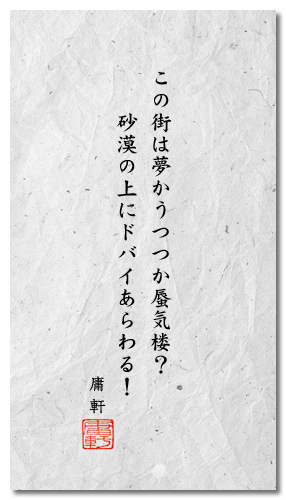 この街は夢かうつつか蜃気楼？
砂漠の上にドバイあらわる！
庸軒
庸軒